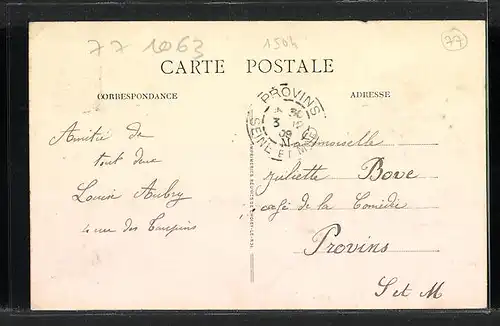 77 1063
1504
77
CARTE POSTALE
CORRESPONDANCE
ADRESSE
PROVINS
3
09
SEINE ET M
Amitié de
tout
Louise Aubry
4 rue des
Mademoiselle
Juliette Bove
café de la Comédie
Provins
S et M